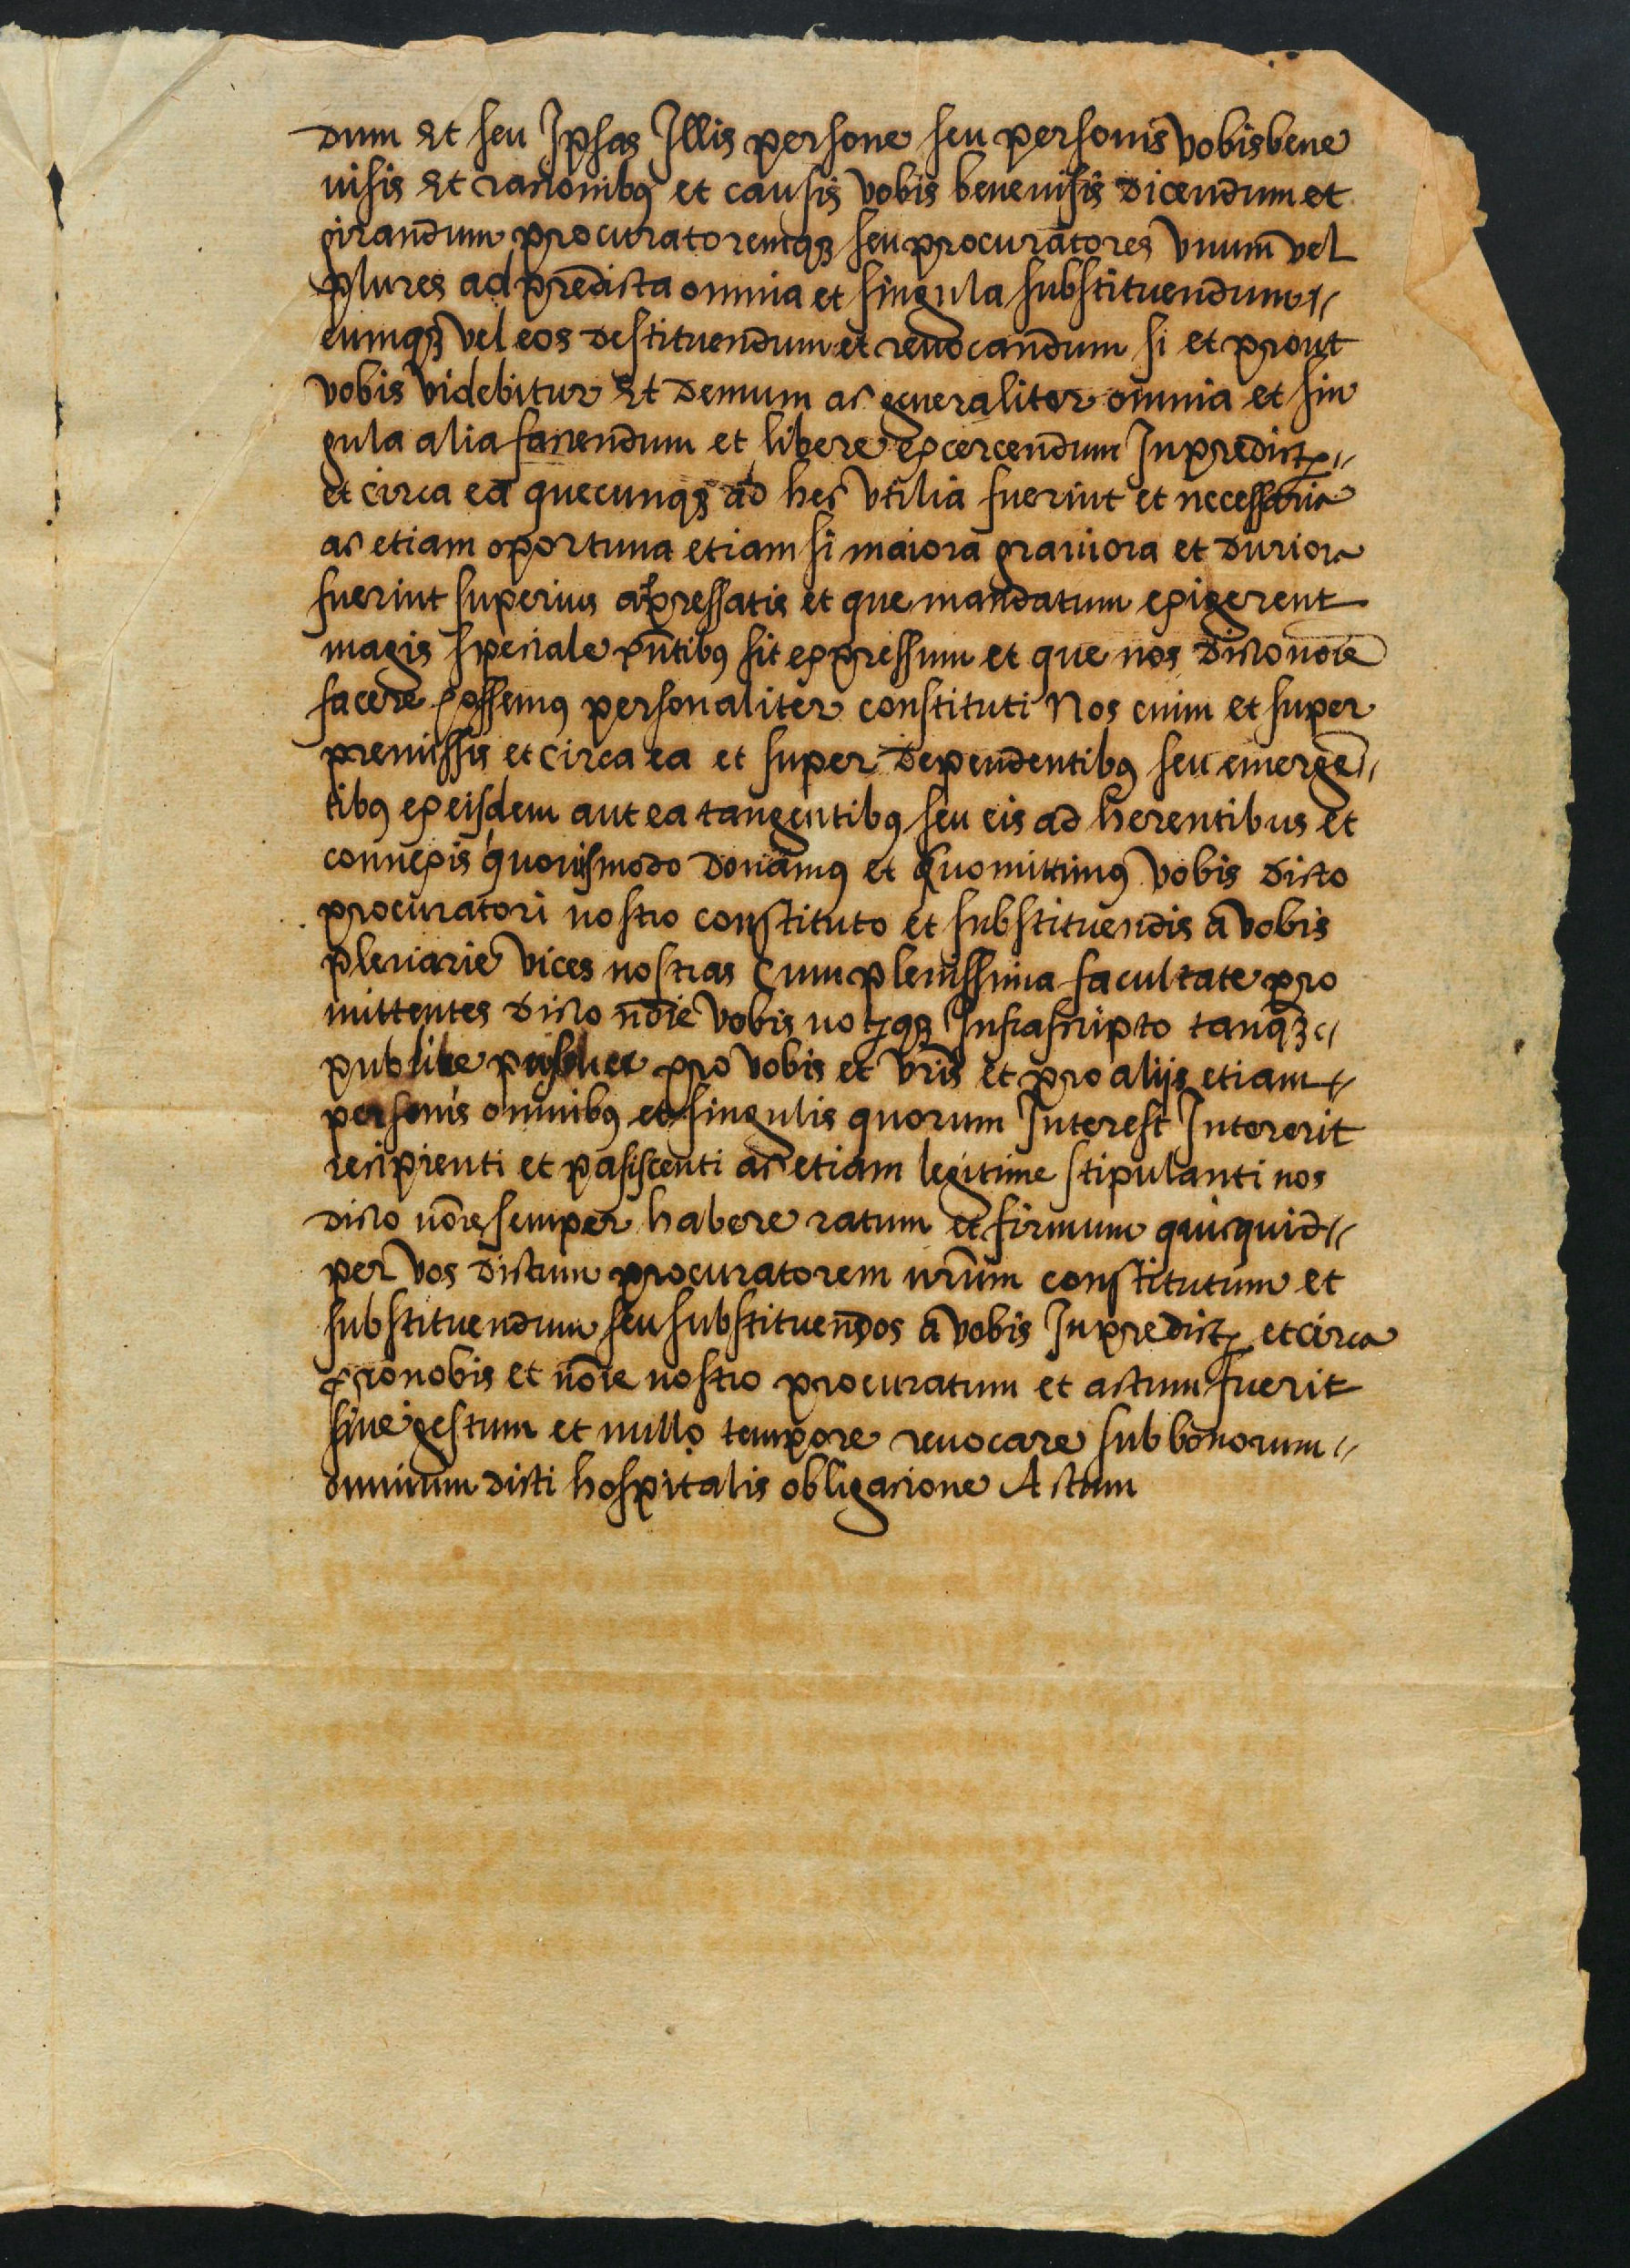 dum Et seu Ipsas Illis persone seu personis vobis bene
uisis Et racionibus et causis vobis beneuisis dicendum et
girandum procuratoremque seu procuratores vnum vel
plures ad predicta omnia et singula substituendum
eumque vel eos destituendum et reuocandum si et prout
vobis videbitur Et demum ac generaliter omnia et sin
gula alia faciendum et libere excercendum In predictis
et circa ea quecunque ad hec vtilia fuerint et necessaria
ac etiam oportuna etiam si maiora grauiora et duriora
fuerint superius expressatis et que mandatum exigerent
magis speciale pntibus sit expressum et que nos dicto noie
facere possemus personaliter constituti Nos enim et super
premissis et circa ea et super dependentibus seu emergē
tibus ex eisdem aut ea tangentibus seu eis ad herentibus et
connexis quouismodo donamus et comittimus vobis dicto
procuratori nostro constituto et substituendis a vobis
plenarie vices nostras Cum plenissima facultate pro
mittentes dicto noie vobis notarioque Infrascripto tanquam
publice persone pro vobis et vris et pro alijs etiam
personis omnibus et singulis quorum Interest Intererit
recipienti et pasiscenti ac etiam legitime stipulanti nos
dicto noie semper habere ratum et firmum quicquid
per vos dictum procuratorem nrum constitutum et
substituendum seu substituendos a vobis In predictis et circa
pro nobis et noie nostro procuratum et actum fuerit
siue gestum et nullo tempore reuocare sub bonorum
omnium dicti hospitalis obligacione Actum